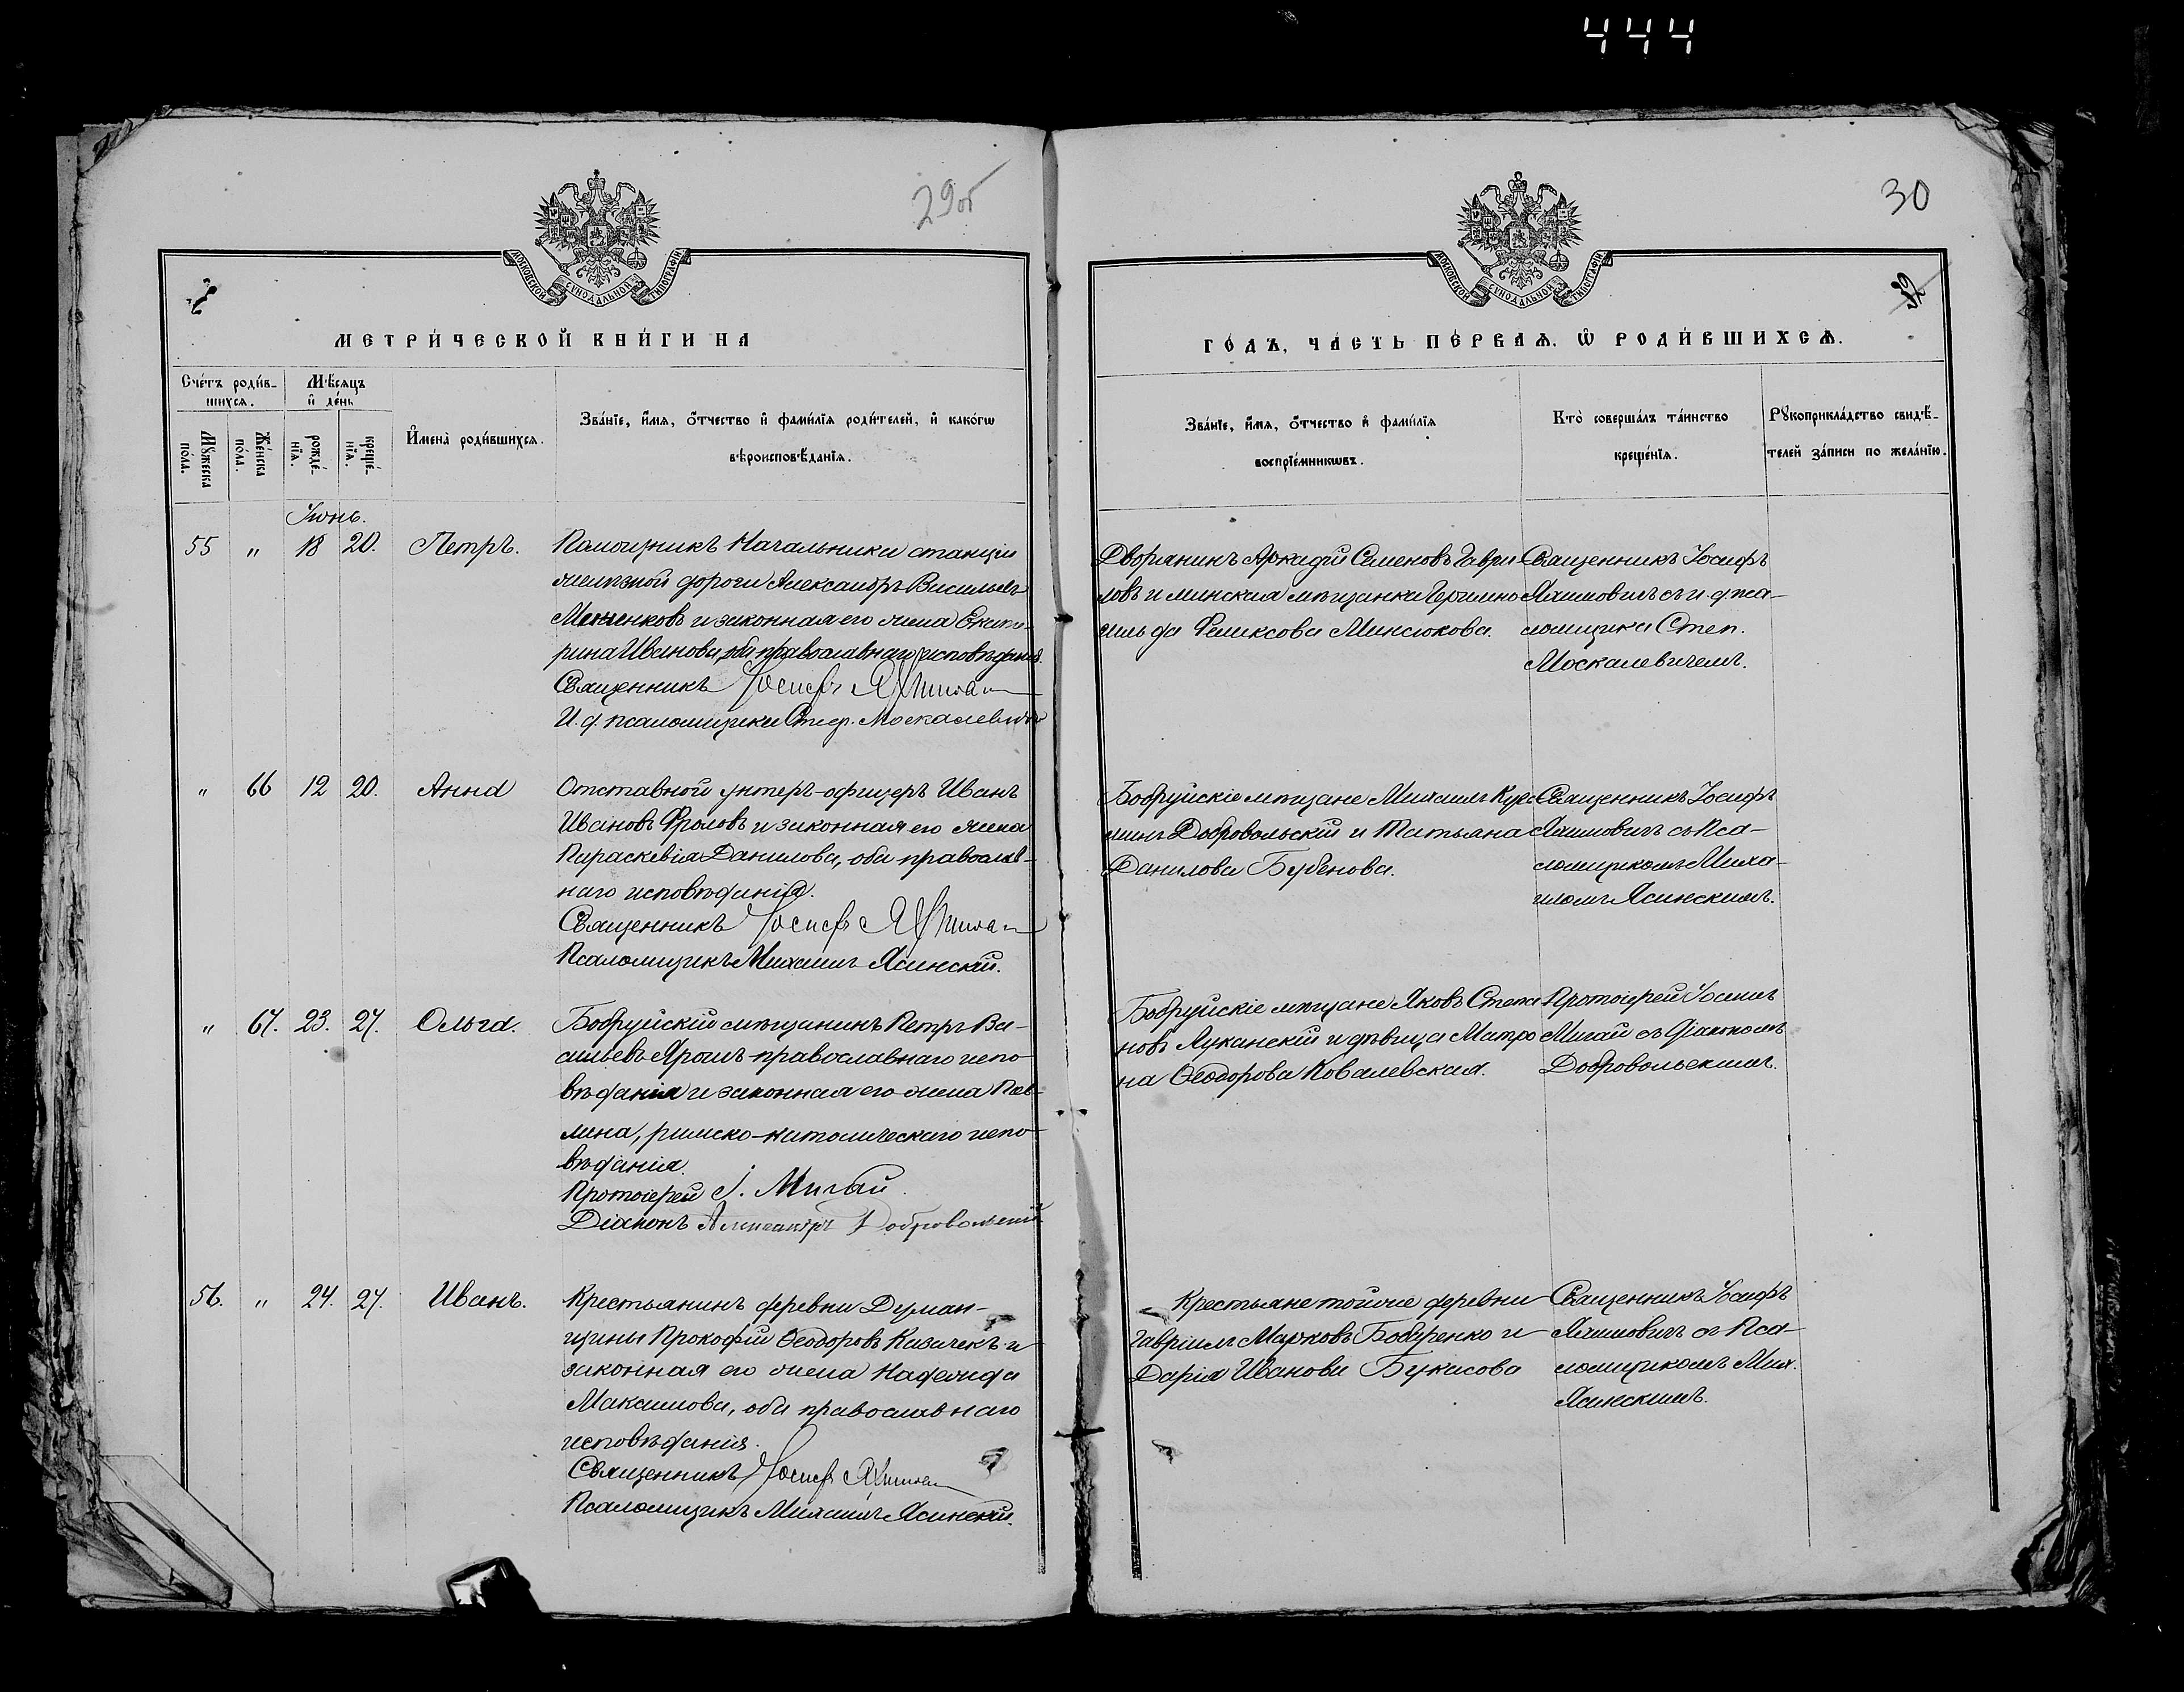 444
29об
30
МОСКОВСКОЙ СѴНОДАЛЬНОЙ ТИПОГРАФІИ
МОСКОВСКОЙ СѴНОДАЛЬНОЙ ТИПОГРАФІИ
МЕТРИ́ЧЕСКОЙ КНИ́ГИ НА
ГО́ДЪ, ЧА́СТЬ ПЕ́РВАѦ, Ѿ РОДИ́ВШИХСѦ.
Сче́тъ роди́в-
шихсѧ.
Мѣ́сѧцъ
и҆ де́нь
Мꙋ́жеска по́ла.
Же́нска по́ла.
рожде́-нїѧ.
креще́-нїѧ.
И҆мена̀ роди́вшихсѧ.
Зва́нїе, и҆́мѧ, ѻ҆́тчество и҆ фами́лїѧ роди́телей, и҆ како́гѡ
вѣроисповѣ́данїѧ.
Зва́нїе, и҆́мѧ, ѻ҆́тчество и҆ фами́лїѧ
воспрїе́мникѡвъ.
Кто̀ соверша́лъ та́инство
креще́нїѧ.
Рꙋкоприкла́дство свидѣ́-
телей за́писи по жела́нїю.
Іюнь.
55 " 18 20. Петръ.
Помощникъ Начальника станціи
желѣзной дороги Александръ Васильевъ
Меженковъ и законная его жена Екате-
рина Иванова, оба православнаго исповѣданія.
Священникъ Іосифъ
И. д. псаломщика Стеф. Москалевичъ
Дворянинъ Аркадій Семеновъ Гаври-
ловъ и минская мѣщанка
Феликсова Минсюкова.
Священникъ Іосифъ
Яхимовичъ съ и. д. пса-
ломщика Степ.
Москалевичемъ.
" 66 12 20. Анна
Отставной унтеръ-офицеръ Иванъ
Ивановъ Фроловъ и законная его жена
Параскевія Данилова, оба православ-
наго исповѣданія.
Священникъ Іосифъ
Псаломщикъ Михаилъ Ясинскій.
Бобруйскіе мѣщане Михаилъ
Добровольскій и Татьяна
Данилова Бубенова.
Священникъ Іосифъ
Яхимовичъ съ Пса-
ломщикомъ Миха-
иломъ Ясинскимъ.
" 67. 23. 27. Ольга.
Бобруйскій мѣщанинъ Петръ Ва-
сильевъ Ярошъ православнаго испо-
вѣданія и законная его жена Пав-
лина, римско-католическаго испо-
вѣданія.
Протоіерей І. Мигай.
Діаконъ Александръ Добровольскій
Бобруйскіе мѣщане Яковъ Степа-
новъ Луканскій и дѣвица Матро-
на Ѳеодорова Ковалевская.
Протоіерей Іосифъ
Мигай съ Діакономъ
Добровольскимъ.
56. " 24. 27. Иванъ.
Крестьянинъ деревни Думан-
щины Прокофій Ѳеодоровъ Казачекъ и
законная его жена Надежда
Максимова, оба православнаго
исповѣданія.
Священникъ Іосифъ
Псаломщикъ Михаилъ Ясинскій.
Крестьяне тойже деревни
Гавріилъ Марковъ Бобренко и
Дарія Иванова Букасова
Священникъ Іосифъ
Яхимовичъ съ Пса-
ломщикомъ Мих.
Ясинскимъ.